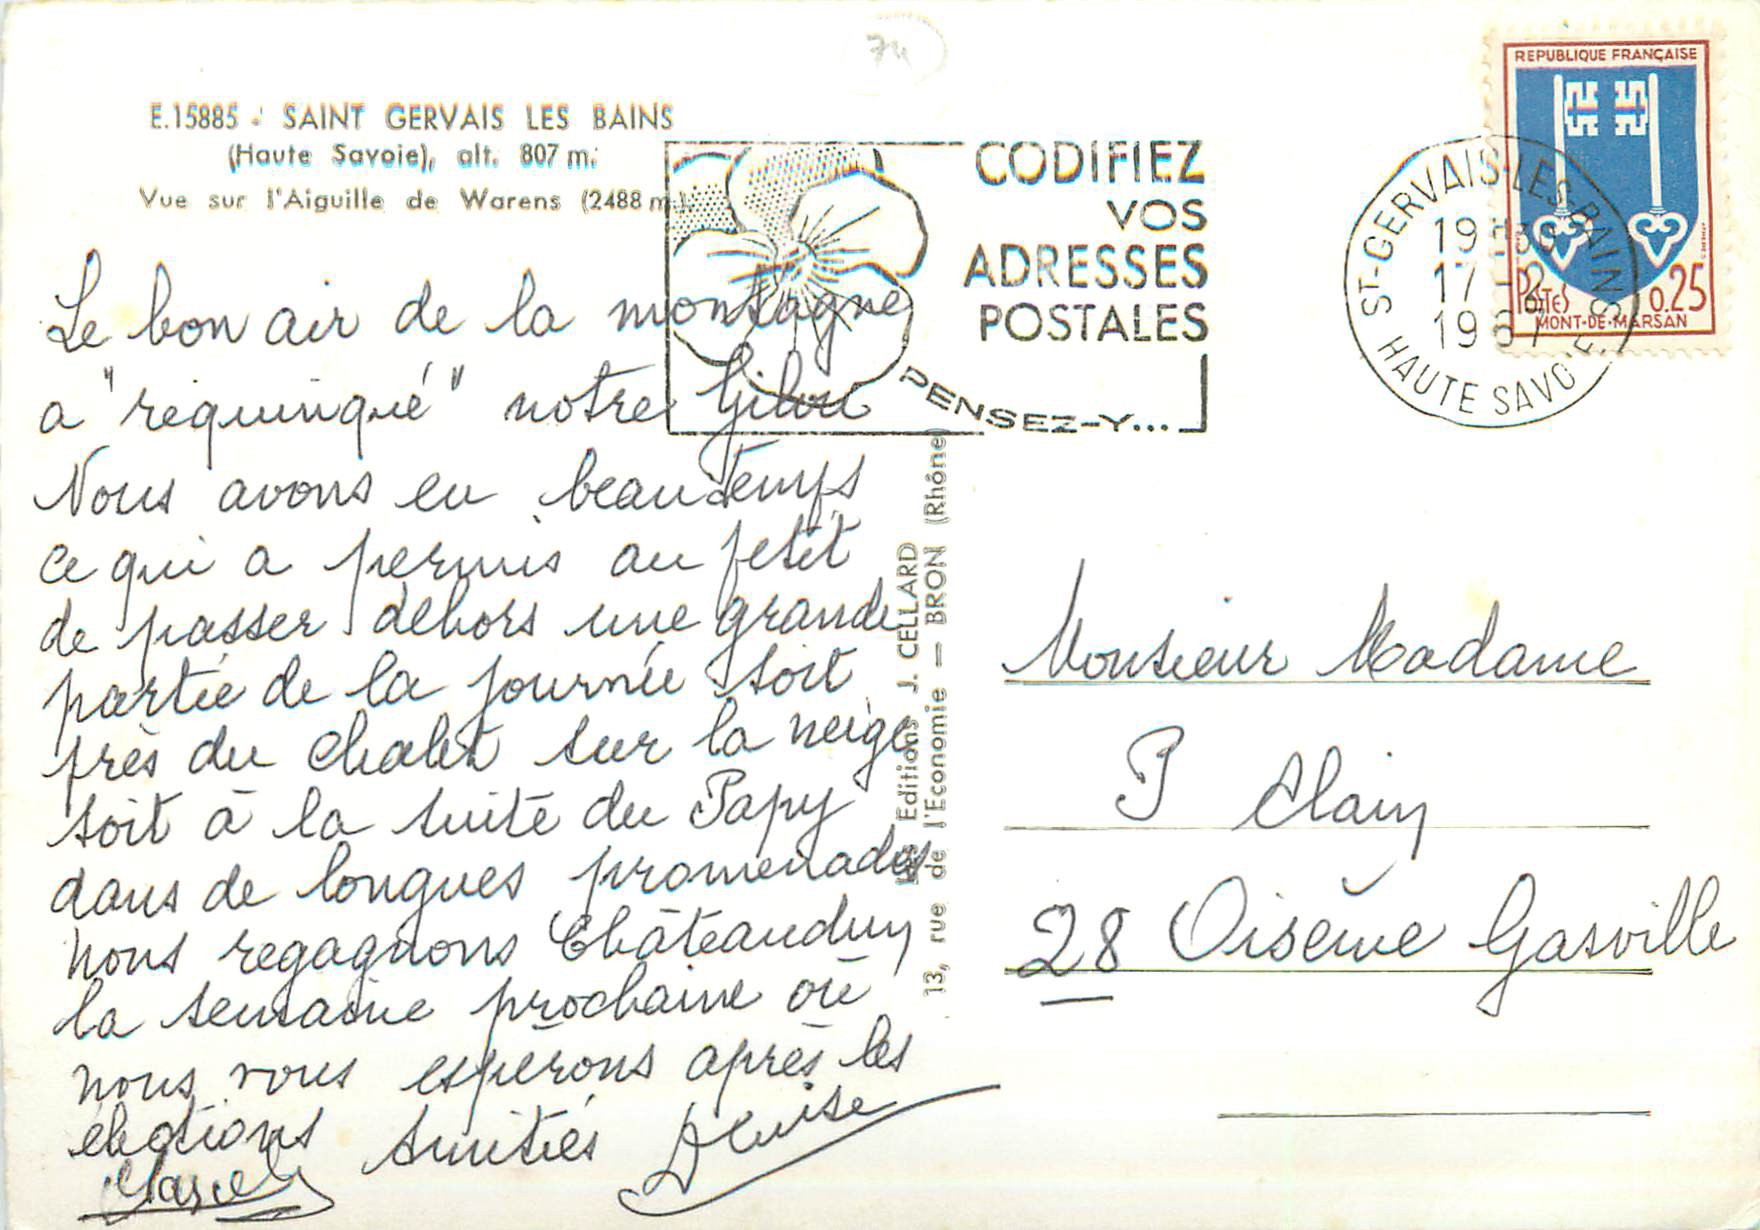 74
E.15885 - SAINT GERVAIS LES BAINS
(Haute Savoie), alt. 807 m.
Vue sur l'Aiguille de Warens (2488 m.).
Le bon air de la montagne
a "requinqué" notre Gilou
Nous avons eu beau temps
ce qui a permis au petit
de passer dehors une grande
partie de la journée soit
près du chalet sur la neige
soit à la suite du Papy
dans de longues promenades
nous regagnons Châteaudun
la semaine prochaine où
nous vous espérons après les
élections Amitiés Denise
Marcel
CODIFIEZ
VOS
ADRESSES
POSTALES
PENSEZ-Y...
ST-GERVAIS-LES-BAINS
19H30
17 -2
1967
HAUTE SAVOIE
REPUBLIQUE FRANÇAISE
POSTES 0.25
MONT-DE-MARSAN
Editions J. CELLARD
13, rue de l'Economie = BRON (Rhône)
Monsieur Madame
P Alain
28 Oisème Gasville